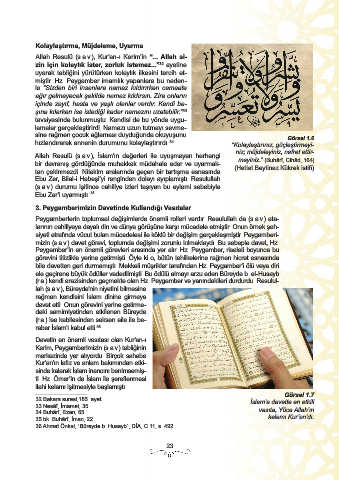 Kolaylaştırma, Müjdeleme, Uyarma
Allah Resulü (s a v ), Kur'an-ı Kerim'in "... Allah si-
zin için kolaylık ister, zorluk istemez..."³² ayetine
uyarak tebliğini yürütürken kolaylık ilkesini tercih et-
miştir Hz Peygamber imamlık yapanlara bu neden-
le "Sizden biri insanlara namaz kıldırırken cemaate
ağır gelmeyecek şekilde namaz kıldırsın. Zira onların
içinde zayıf, hasta ve yaşlı olanlar vardır. Kendi ba-
şına kılarken ise istediği kadar namazını uzatabilir."³³
tavsiyesinde bulunmuştu Kendisi de bu yönde uygu-
lamalar gerçekleştirirdi Namazı uzun tutmayı sevme-
sine rağmen çocuk ağlaması duyduğunda okuyuşunu
hızlandırarak annenin durumunu kolaylaştırırdı ³⁴
Allah Resulü (s a v ), İslam'ın değerleri ile uyuşmayan herhangi
bir davranış gördüğünde muhatabı müdahale eder ve uyarmak-
tan çekinmezdi Nitekim aralarında geçen bir tartışma esnasında
Ebu Zer, Bilal-i Habeşi'yi renginden dolayı ayıplamıştı Resulullah
(s a v ) durumu işitince cahiliye izleri taşıyan bu eylemi sebebiyle
Ebu Zer'i uyarmıştı ³⁵
Görsel 1.6
"Kolaylaştırınız, güçleştirmeyi-
niz; müjdeleyiniz, nefret ettir-
meyiniz." (Buhârî, Cihâd, 164)
(Hattat Beytinez Kökrek istifi)
3. Peygamberimizin Davetinde Kullandığı Vasıtalar
Peygamberlerin toplumsal değişimlerde önemli rolleri vardır Resulullah da (s a v ) ata-
larının cahiliyeye dayalı din ve dünya görüşüne karşı mücadele etmiştir Onun örnek şah-
siyeti etrafında vücut bulan mücadelesi ile köklü bir değişim gerçekleşmiştir Peygamberi-
mizin (s a v ) davet görevi, toplumda değişimi zorunlu kılmaktaydı Bu sebeple davet, Hz
Peygamber'in en önemli görevleri arasında yer alır Hz Peygamber, risalet boyunca bu
görevini titizlikle yerine getirmişti Öyle ki o, bütün tehlikelerine rağmen hicret esnasında
bile davetten geri durmamıştı Mekkeli müşrikler tarafından Hz Peygamber'i ölü veya diri
ele geçirene büyük ödüller vadedilmişti Bu ödülü almayı arzu eden Büreyde b el-Husayb
(r a ) kendi arazisinden geçmekte olan Hz Peygamber ve yanındakileri durdurdu Resulul-
lah (s a v ), Büreyde'nin niyetini bilmesine
rağmen kendisini İslam dinine girmeye
davet etti Onun görevini yerine getirme-
deki samimiyetinden etkilenen Büreyde
(r a ) ise kabilesinden seksen aile ile be-
raber İslam'ı kabul etti ³⁶
Davetin en önemli vasıtası olan Kur'an-ı
Kerim, Peygamberimizin (s a v ) tebliğinin
merkezinde yer alıyordu Birçok sahabe
Kur'an'ın lafız ve anlam bakımından etki-
sinde kalarak İslam inancını benimsemiş-
ti Hz Ömer'in de İslam ile şereflenmesi
ilahi kelamı işitmesiyle başlamıştı
Görsel 1.7
İslam'a davette en etkili
vasıta, Yüce Allah'ın
kelamı Kur'an'dı.
32 Bakara suresi, 185 ayet
33 Nesâî, İmamet, 35
34 Buhârî, Ezan, 65
35 bk Buhârî, İman, 22
36 Ahmet Önkal, "Büreyde b Husayb", DİA, C 11, s 492
23